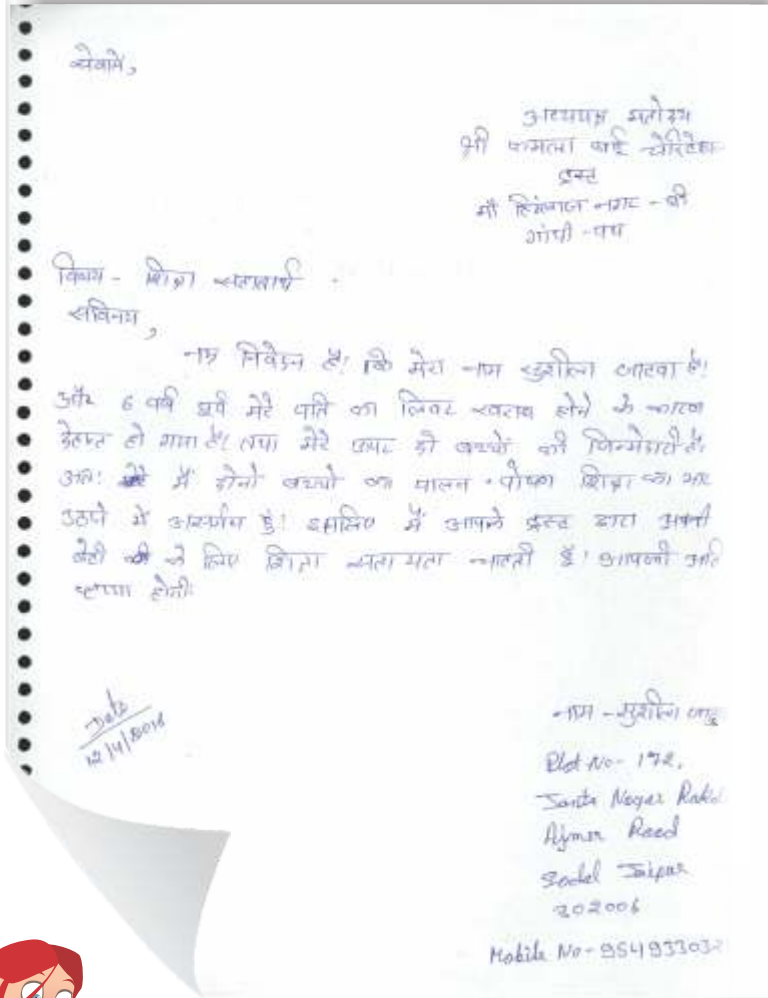 सेवामें,
अध्यक्ष महोदय
श्री कमला बाई चेरिटेबल
ट्रस्ट
माँ हिंगलाज नगर - बी
गांधी - पथ
विषय - शिक्षा सहातार्थ
सविनय,
नम्र निवेदन है। कि मेरा नाम सुशीला जाटवा है।
और 6 वर्ष पूर्व मेरे पति का लिवर खराब होने के कारण
देहान्त हो गया है। तथा मेरे ऊपर दो बच्चों की जिम्मेदारी है।
अतः मैं दोनो बच्चो का पालन-पोषण शिक्षा का भार
उठाने में असमर्थ हूं। इसलिए मैं आपके ट्रस्ट द्वारा अपनी
बेटी के लिए शिक्षा सहायता चाहती हूँ। आपकी अति
कृपा होगी।
Date
12/4/2018
नाम - सुशीला
Plot No - 172,
Janta Nagar
Ajmer Road
Sodal Jaipur
302006
Mobile No - 954933032